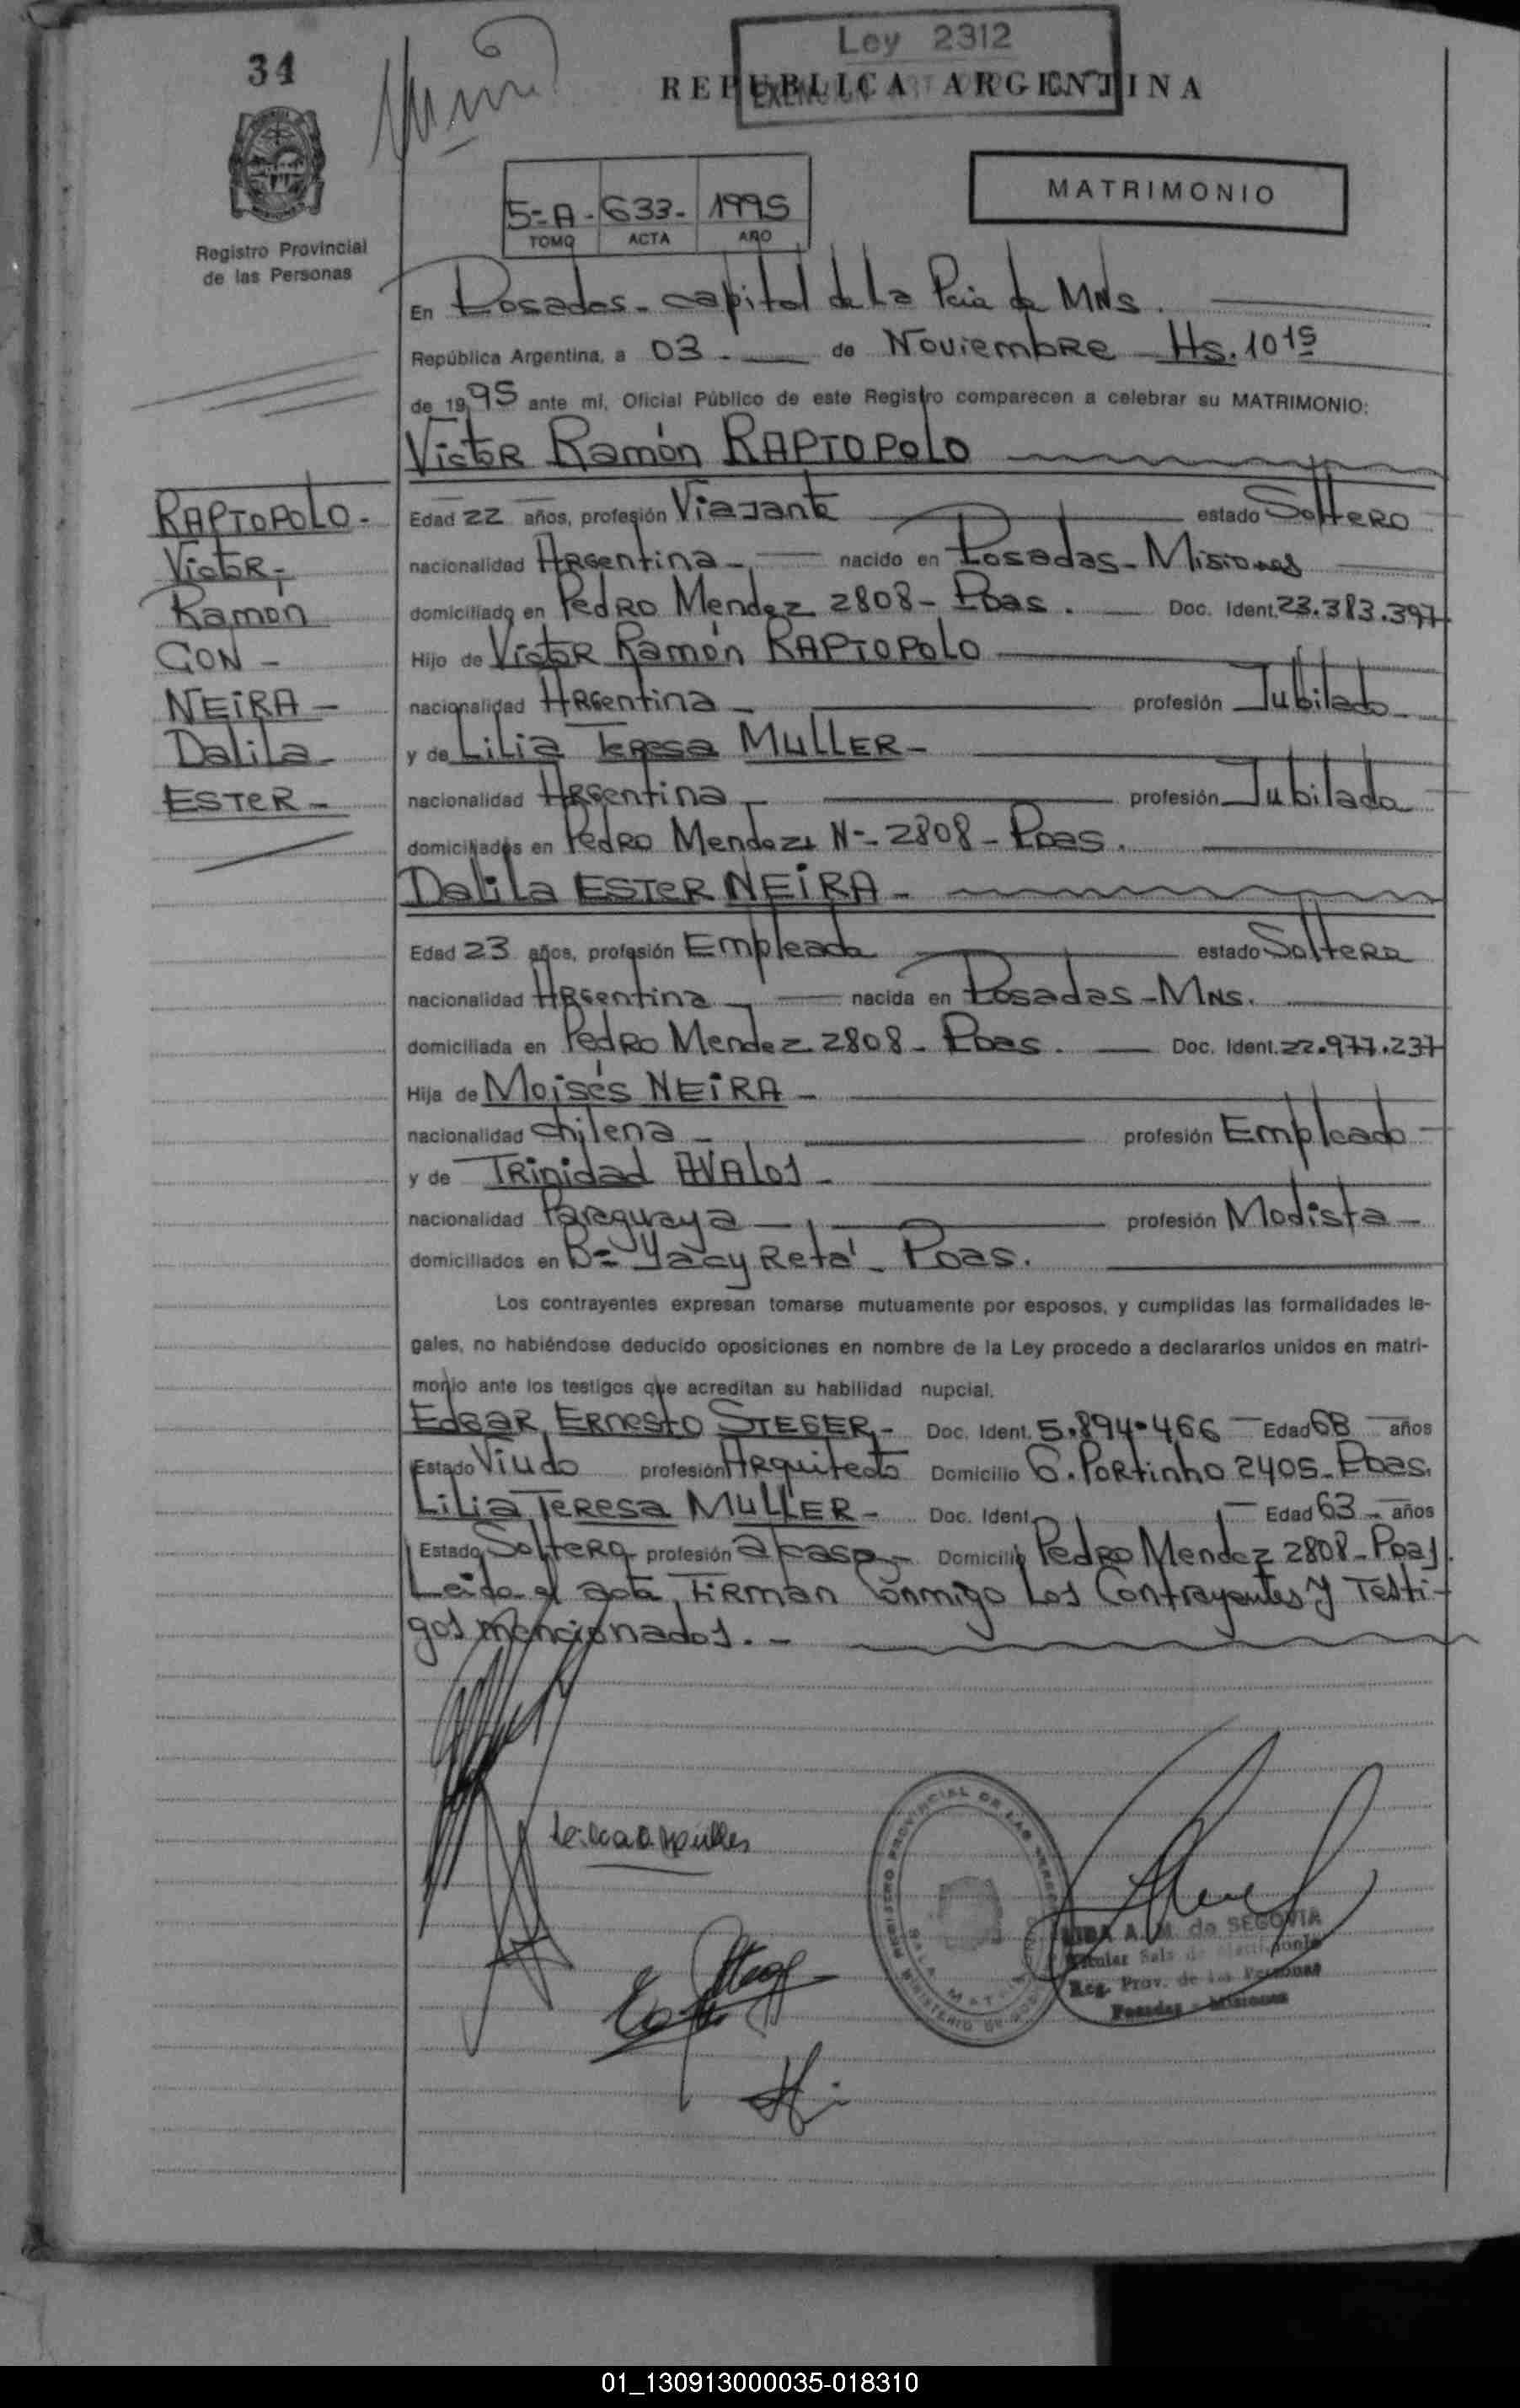 34
Ley 2312
REPUBLICA ARGENTINA
MATRIMONIO
5=A - 633 - 1995
TOMO ACTA AÑO
Registro Provincial
de las Personas
En Posadas - capital de La Pcia de MNS.
República Argentina, a 03 - de Noviembre Hs. 10 15
de 1995 ante mi, Oficial Público de este Registro comparecen a celebrar su MATRIMONIO:
Victor Ramón RAPTOPOLO
RAPTOPOLO -
Victor -
Ramon
CON -
NEIRA -
Dalila -
ESTER -
Edad 22 años, profesión Viajante estado Soltero
nacionalidad Argentina - nacido en Posadas - Misiones
domiciliado en Pedro Mendez 2808 - Pdas. Doc. Ident. 23.383.397
Hijo de Victor Ramón RAPTOPOLO
nacionalidad Argentina - profesión Jubilado -
y de Lilia Teresa MULLER -
nacionalidad Argentina - profesión Jubilada
domiciliados en Pedro Mendez N= 2808 - Pdas.
Dalila ESTER NEIRA -
Edad 23 años, profesión Empleada estado Soltera
nacionalidad Argentina - nacida en Posadas - MNS.
domiciliada en Pedro Mendez 2808 - Pdas. Doc. Ident. 22.977.237
Hija de Moisés NEIRA -
nacionalidad chilena - profesión Empleado
y de Trinidad AVALOS -
nacionalidad Paraguaya - profesión Modista -
domiciliados en B= Yacyretá - Pdas.
Los contrayentes expresan tomarse mutuamente por esposos, y cumplidas las formalidades le-
gales, no habiéndose deducido oposiciones en nombre de la Ley procedo a declararlos unidos en matri-
monio ante los testigos que acreditan su habilidad nupcial.
Edgar Ernesto STEGER - Doc. Ident. 5.894.466 Edad 68 años
Estado Viudo profesión Arquitecto Domicilio G. Portinho 2405 - Pdas.
Lilia Teresa MULLER - Doc. Ident. Edad 63 - años
Estado Soltera profesión a/casa - Domicilio Pedro Mendez 2808 - Pdas.
Leida el acta, Firman Conmigo Los Contrayentes y Testi-
gos mencionados. -
REGISTRO PROVINCIAL DE LAS
MINISTERIO DE
SALA
A. M. de SEGOVIA
Titular Sala de Matrimonio
Reg. Prov. de las Personas
Posadas - Misiones
01_130913000035-018310